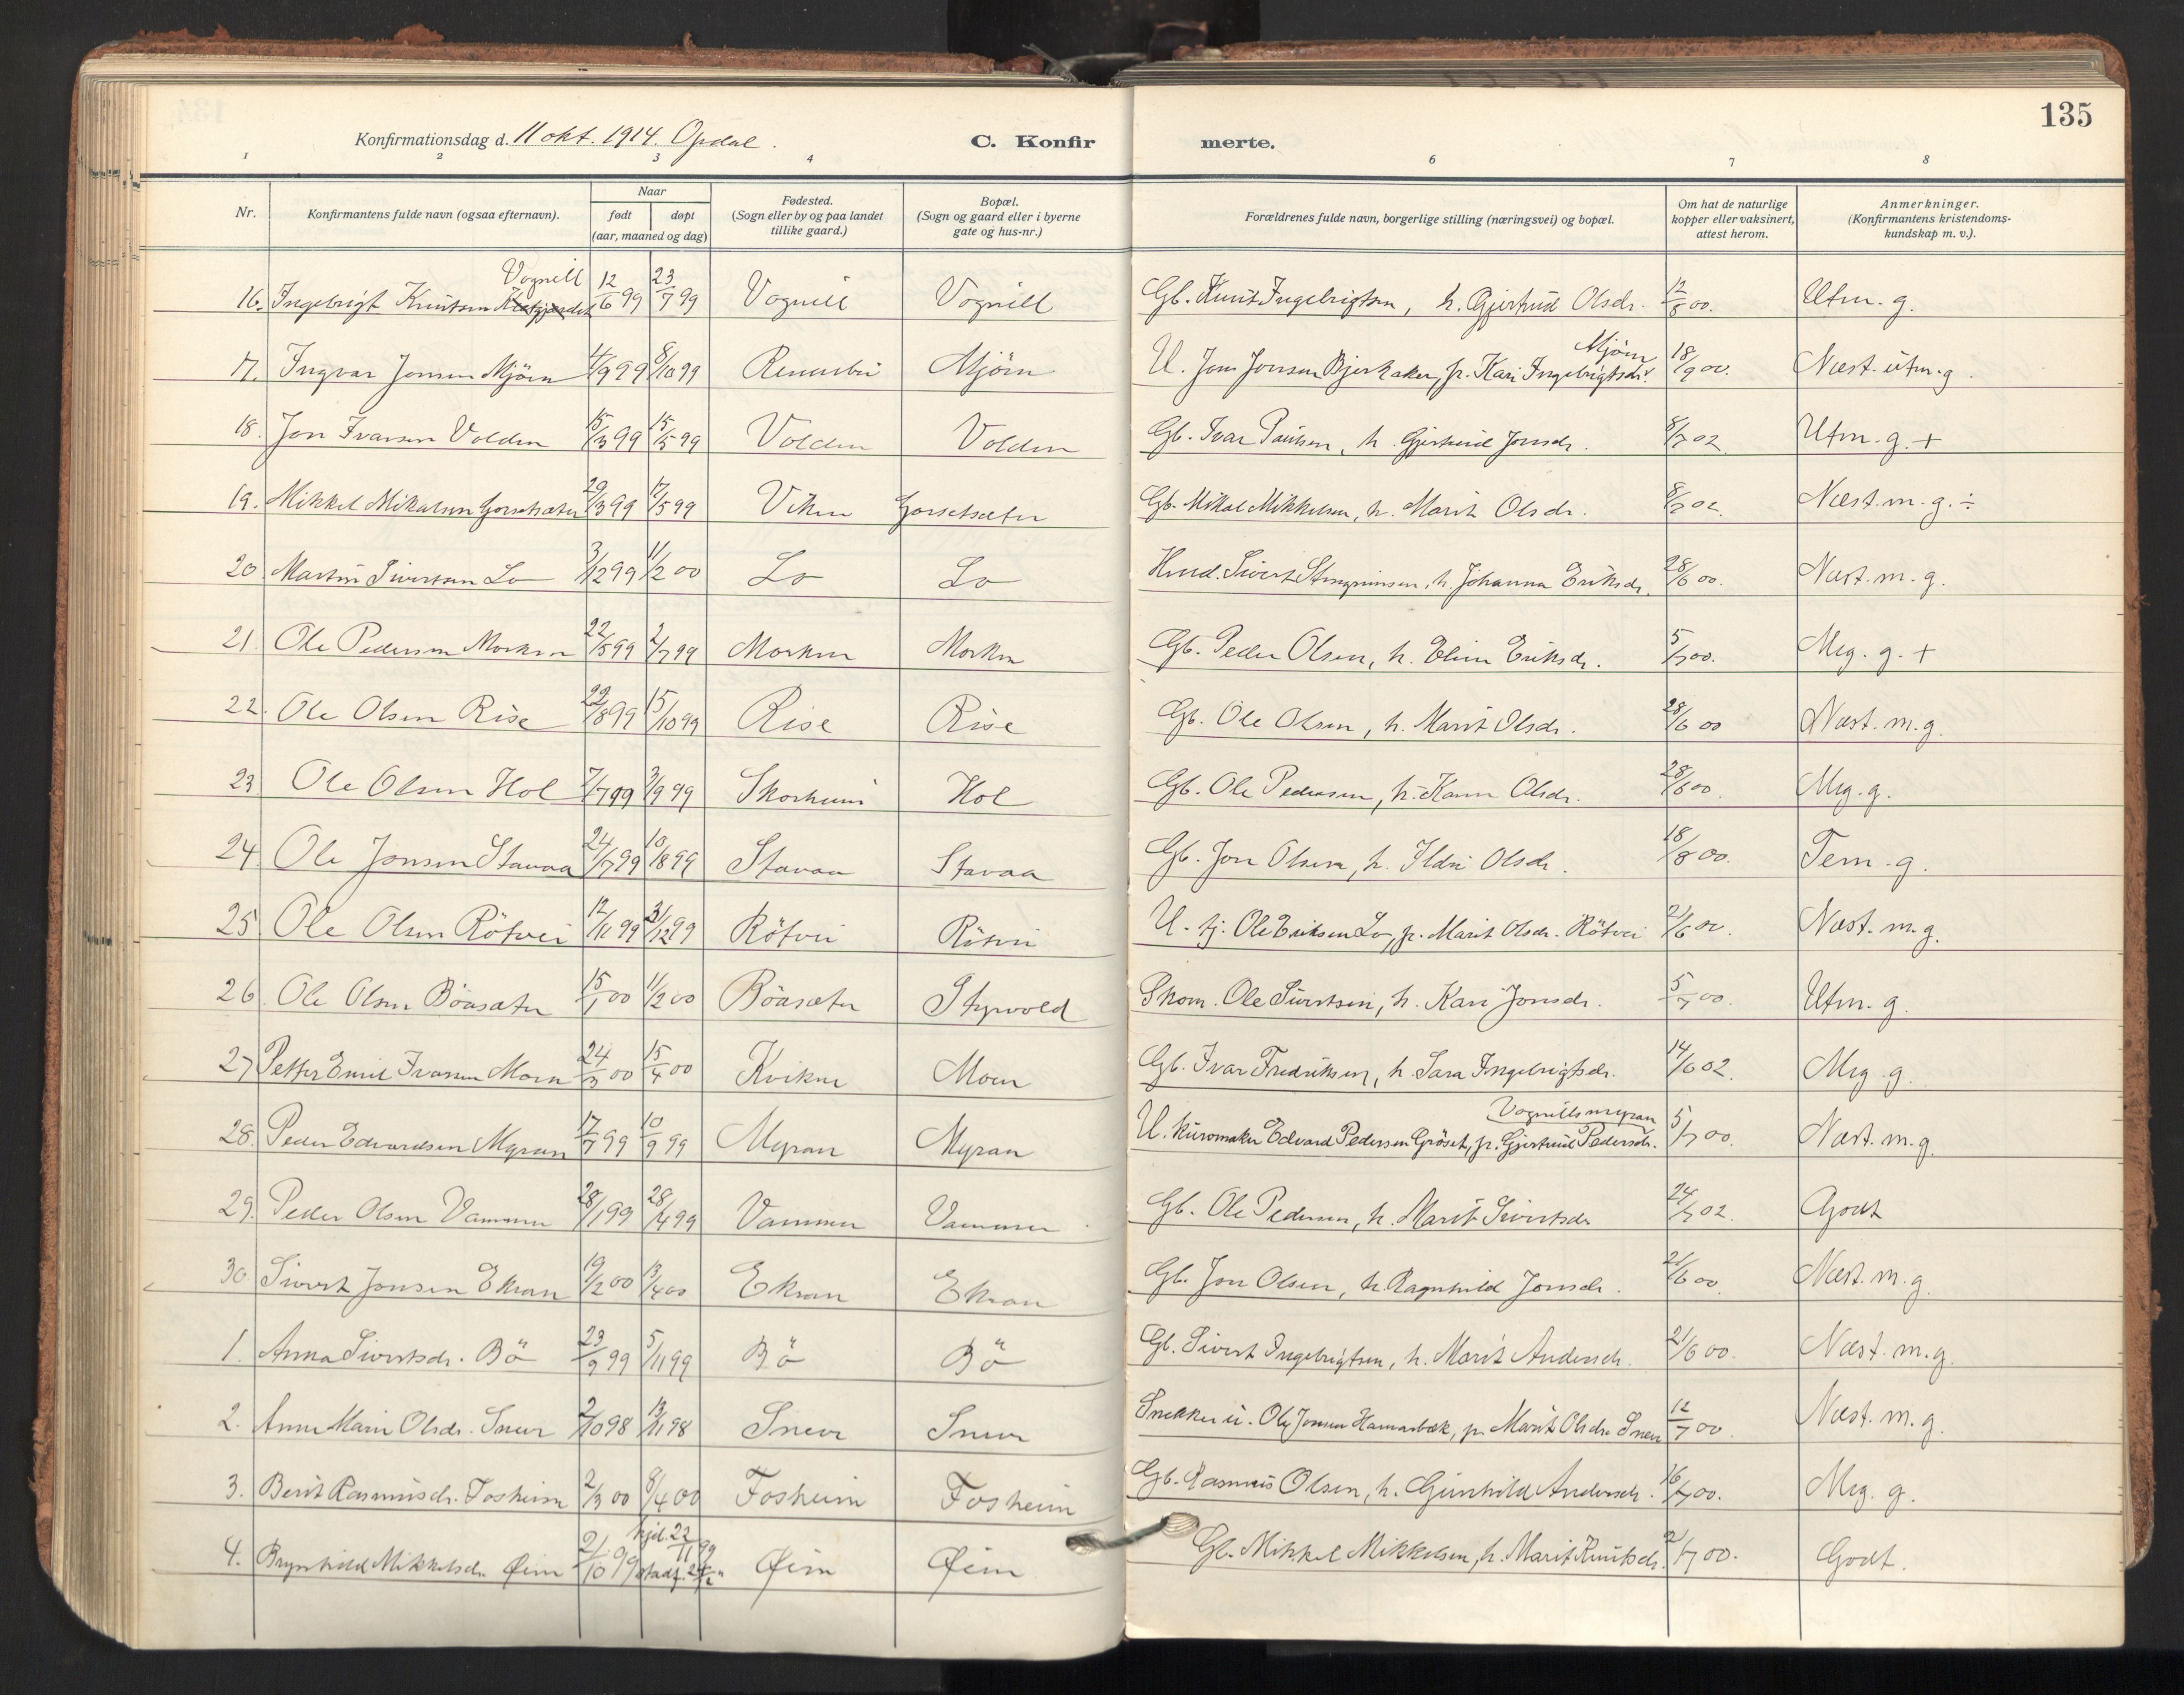 135
Konfirmationsdag d. 11 okt. 1914. Opdal.
C. Konfirmerte.
1 2 3 4 6 7 8
Nr.
Konfirmantens fulde navn (ogsaa efternavn).
Naar
født døpt
(aar, maaned og dag)
Fødested.
(Sogn eller by og paa landet
tillike gaard.)
Bopæl.
(Sogn og gaard eller i byerne
gate og hus-nr.)
Forældrenes fulde navn, borgerlige stilling (næringsvei) og bopæl.
Om hat de naturlige
kopper eller vaksinert,
attest herom.
Anmerkninger.
(Konfirmantens kristendoms-
kundskap m. v.).
Vognill
16. Ingebrigt Knutsen 12/6 99 23/7 99 Vognill Vognill Gb. Knut Ingebrigtsen, h. Gjertrud Olsdr. 12/8 00. Utm. g.
Mjöen
17. Ingvar Jonsen Mjöen 4/9 99 8/10 99 Rennebu Mjöen U. Jon Jonsen Bjerkaker, p. Kari Ingebrigtsdr. 18/9 00. Næst. utm. g.
18. Jon Ivarsen Volden 15/3 99 15/5 99 Volden Volden Gb. Ivar Paulsen, h. Gjertrud Jonsdr. 8/7 02 Utm. g. +
19. Mikkel Mikalsen Gorsetsæter 29/3 99 17/5 99 Viken Gorsetsæter Gb. Mikal Mikkelsen, h. Marit Olsdr. 8/7 02. Næst. m. g. ÷
20. Martin Sivertsen Lo 3/12 99 11/2 00 Lo Lo Hmd. Sivert Stengrimsen, h. Johanna Eriksdr. 28/6 00. Næst. m. g.
21. Ole Pedersen Morken 22/5 99 2/7 99 Morken Morken Gb. Peder Olsen, h. Elen Eriksdr. 5/7 00. Meg. g. +
22. Ole Olsen Rise 22/8 99 15/10 99 Rise Rise Gb. Ole Olsen, h. Marit Olsdr. 28/6 00 Næst. m. g.
23 Ole Olsen Hol 7/7 99 3/9 99 Skorheim Hol Gb. Ole Pedersen, h. Karen Olsdr. 28/6 00. Meg. g.
24. Ole Jonsen Stavaa 24/7 99 10/8 99 Stavaa Stavaa Gb. Jon Olsen, h. Ildri Olsdr. 18/8 00. Tem. g.
25 Ole Olsen Rötvei 12/11 99 31/12 99 Rötvei Rötvei U. tj. Ole Eriksen Lo, p. Marit Olsdr. Rötvei 21/6 00. Næst. m. g.
26. Ole Olsen Böasæter 15/1 00 11/2 00 Böasæter Styvold Skom. Ole Sivertsen, h. Kari Jonsdr. 5/7 00. Utm. g.
27 Petter Emil Ivarsen Moen 24/3 00 15/4 00 Kvikne Moen Gb. Ivar Fredriksen, h. Sara Ingebrigtsdr. 14/6 02. Meg. g.
Vognillsmyran
28. Peder Edvardsen Myran 17/7 99 10/9 99 Myran Myran U. kurvmaker Edvard Pedersen Gröset, p. Gjertrud Pedersdr. 5/7 00. Næst. m. g.
29. Peder Olsen Vammen 28/1 99 28/4 99 Vammen Vammen Gb. Ole Pedersen, h. Marit Sivertsdr 24/7 02. Godt
30. Sivert Jonsen Ekran 19/2 00 13/4 00 Ekran Ekran Gb. Jon Olsen, h. Ragnhild Jonsdr. 21/6 00. Næst. m. g.
1. Anna Sivertsdr. Bö 23/9 99 5/11 99 Bö Bö Gb. Sivert Ingebrigtsen, h. Marit Andersdr. 21/6 00. Næst. m. g.
2. Anne Marie Olsdr. Sneve 2/10 98 13/11 98 Sneve Sneve Snekker u. Ole Jonsen Hammerbæk, p. Marit Olsdr. Sneve 12/7 00. Næst. m. g.
3. Berit Rasmusdr. Fosheim 2/3 00 8/4 00 Fosheim Fosheim Gb. Rasmus Olsen, h. Gunhild Andersdr. 16/7 00. Meg. g.
4. Brynhild Mikkelsdr. Øien 21/10 99 hjd. 22/11 99 stadf. 26/12 " Øien Øien Gb. Mikkel Mikkelsen, h. Marit Knutsdr. 2/7 00. Godt.